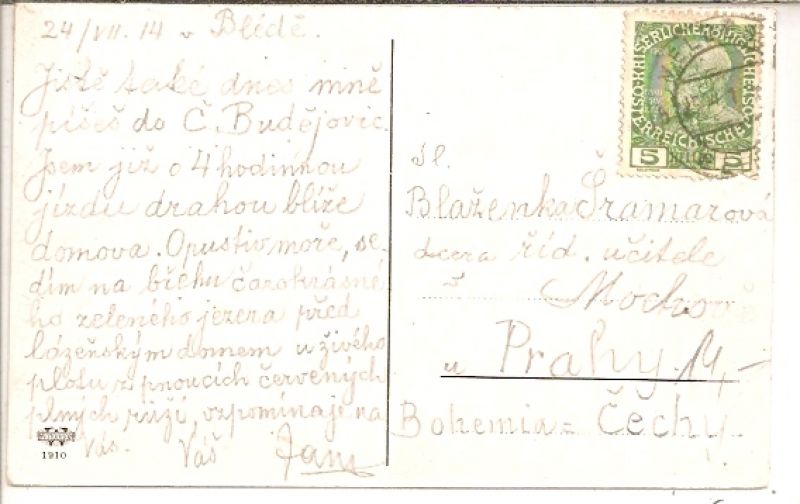 24/VII. 14 v Blédě.
Jistě také dnes mně
píšeš do Č. Budějovic.
Jsem již o 4 hodinnou
jízdu drahou blíže
domova. Opustiv moře, se-
dím na břehu čarokrásné
ho zeleného jezera před
lázeňským domem u živého
plotu z pnoucích červených
plných růží, vzpomínaje na
Vás. Váš Jan
1910
KAISERLICHE KÖNIGLICHE
ÖSTERREICHISCHE
5 5
Sl.
Blaženka Šramarová
dcera říd. učitele
v Mochově
u Prahy. 14,-
Bohemia = Čechy.